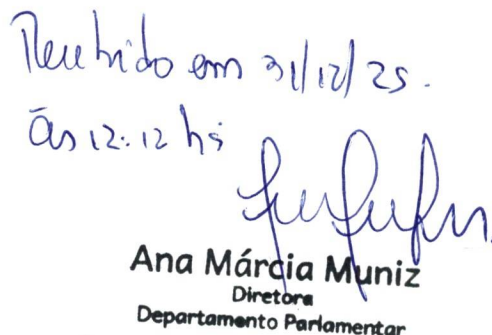 Recebido em 31/12/25.
Às 12:12 hs
Ana Márcia Muniz
Diretora
Departamento Parlamentar